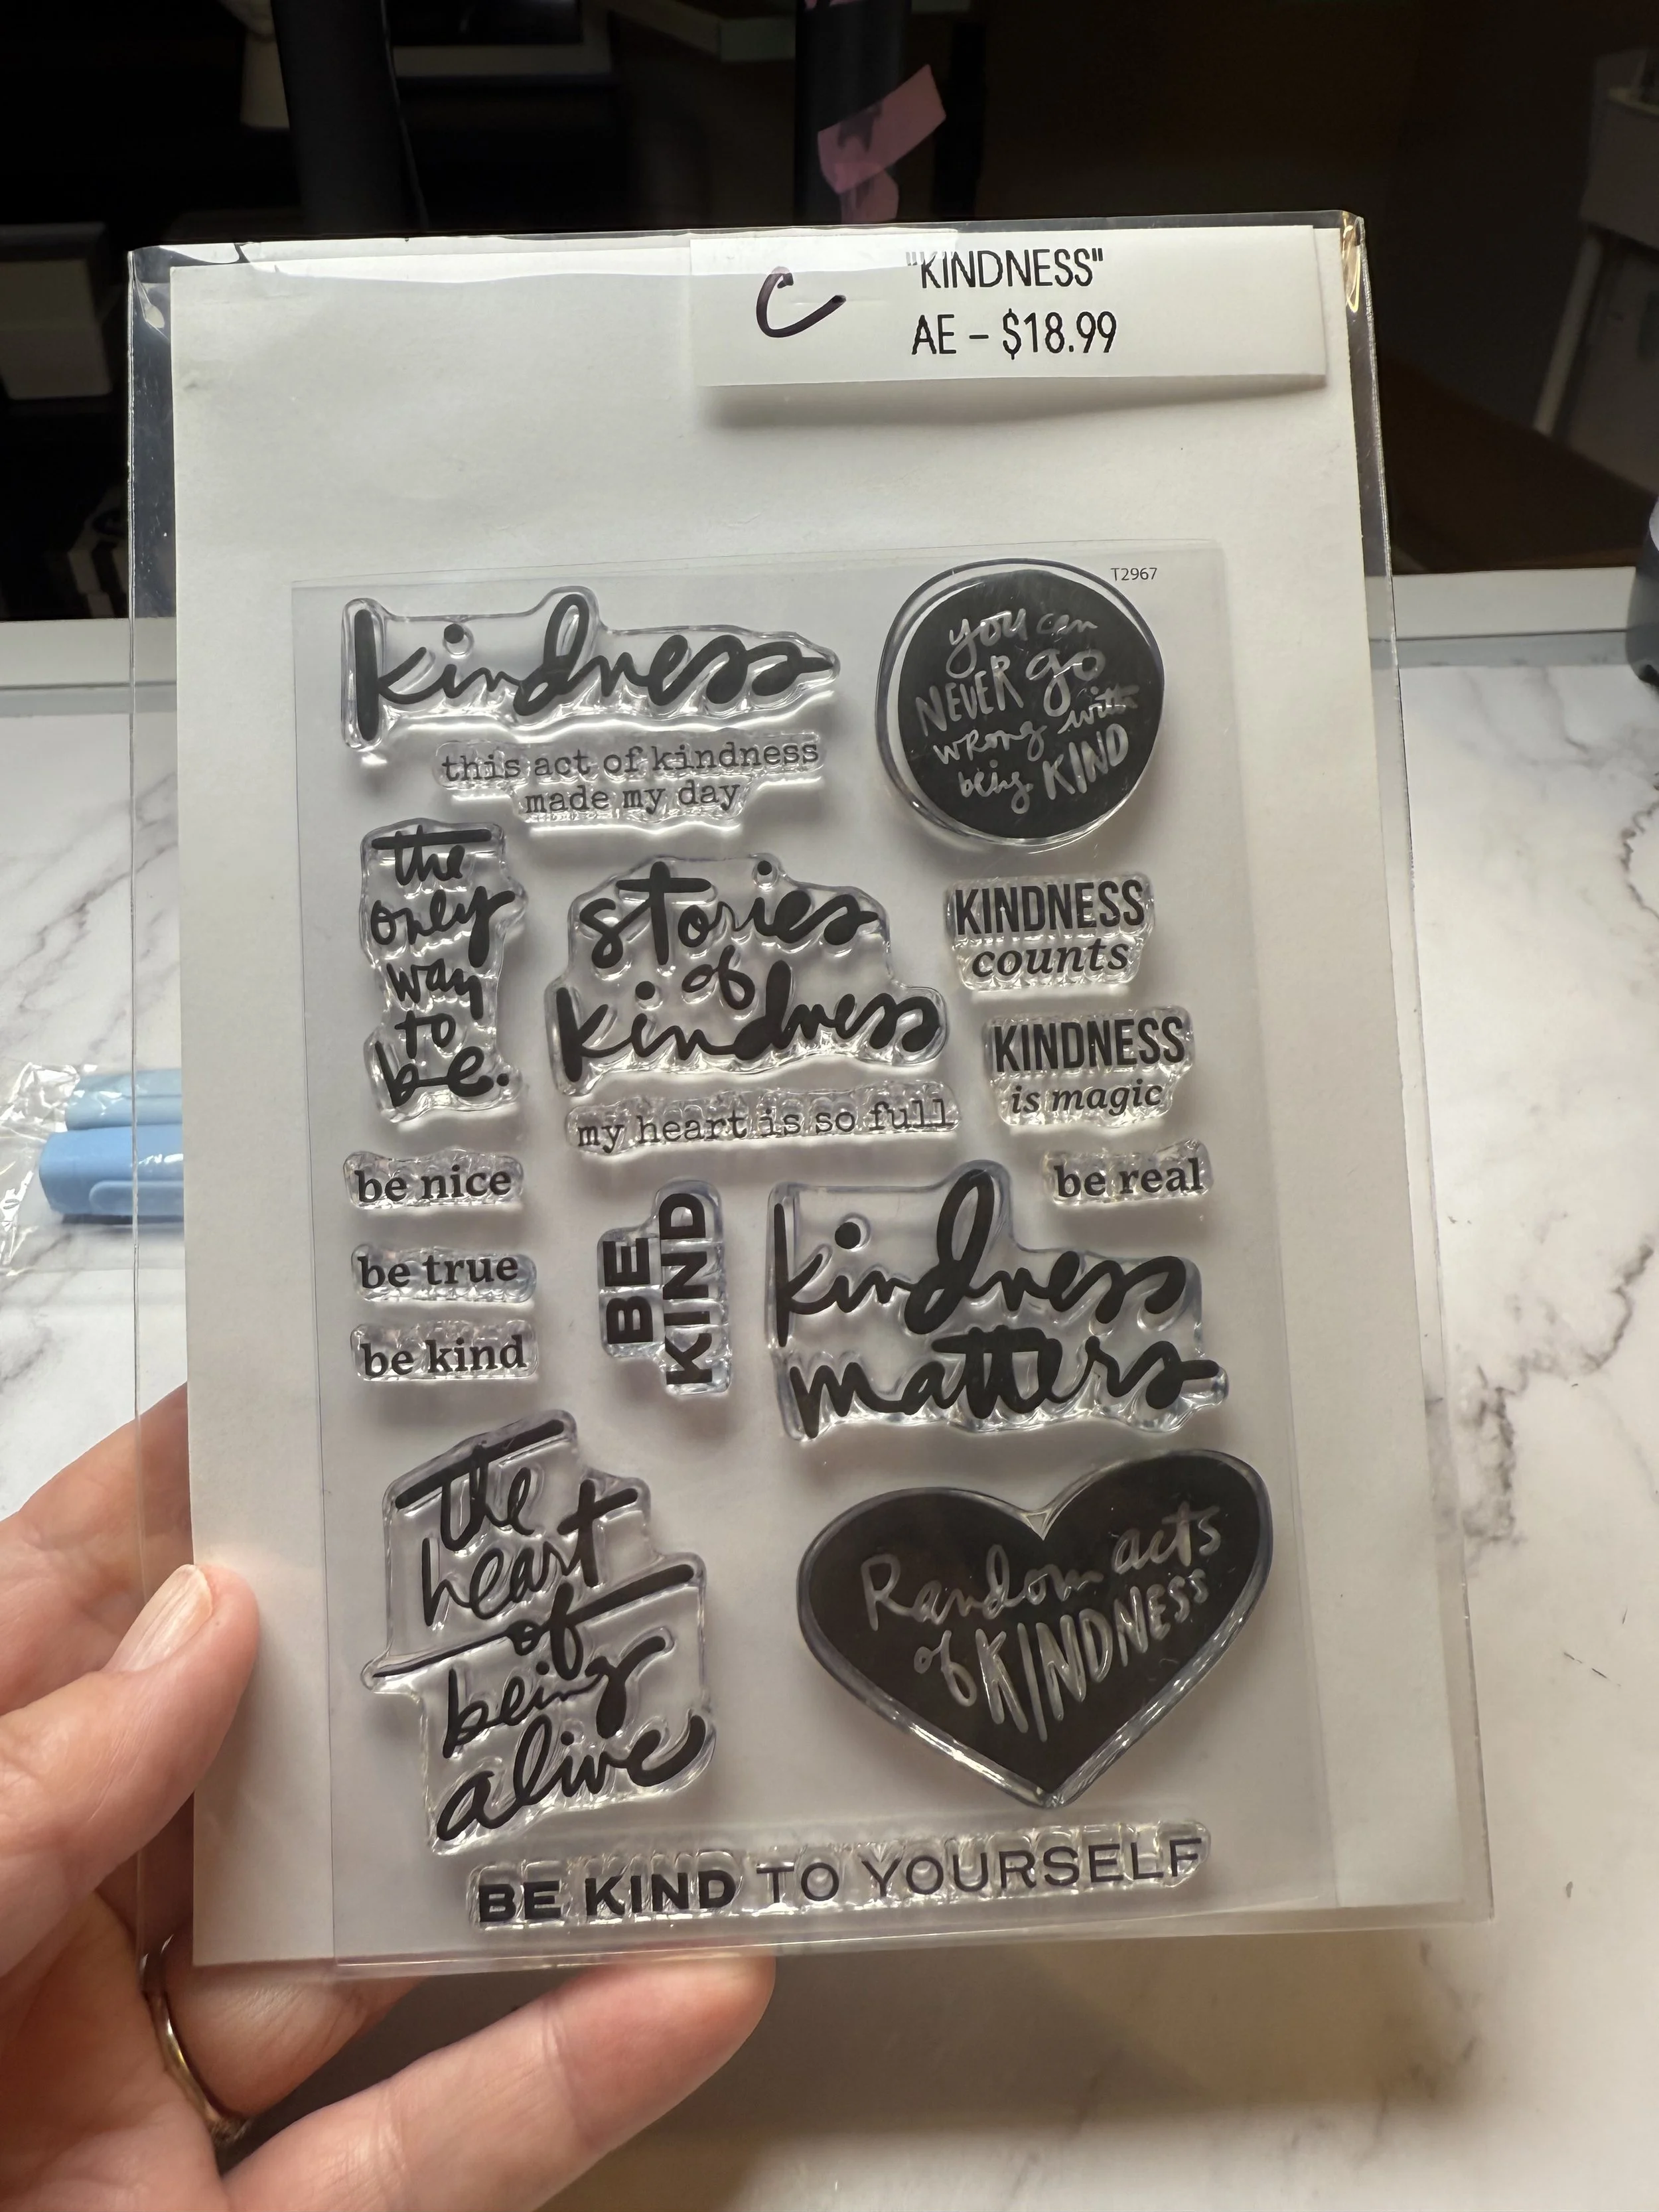 C
"KINDNESS"
AE - $18.99
T2967
kindness
this act of kindness
made my day
you can
NEVER go
wrong with
being KIND
the
only
way
to
be.
stories
of
kindness
my heart is so full
KINDNESS
counts
KINDNESS
is magic
be nice
be true
be kind
BE
KIND
be real
kindness
matters
the
heart
of
being
alive
Random acts
of KINDNESS
BE KIND TO YOURSELF